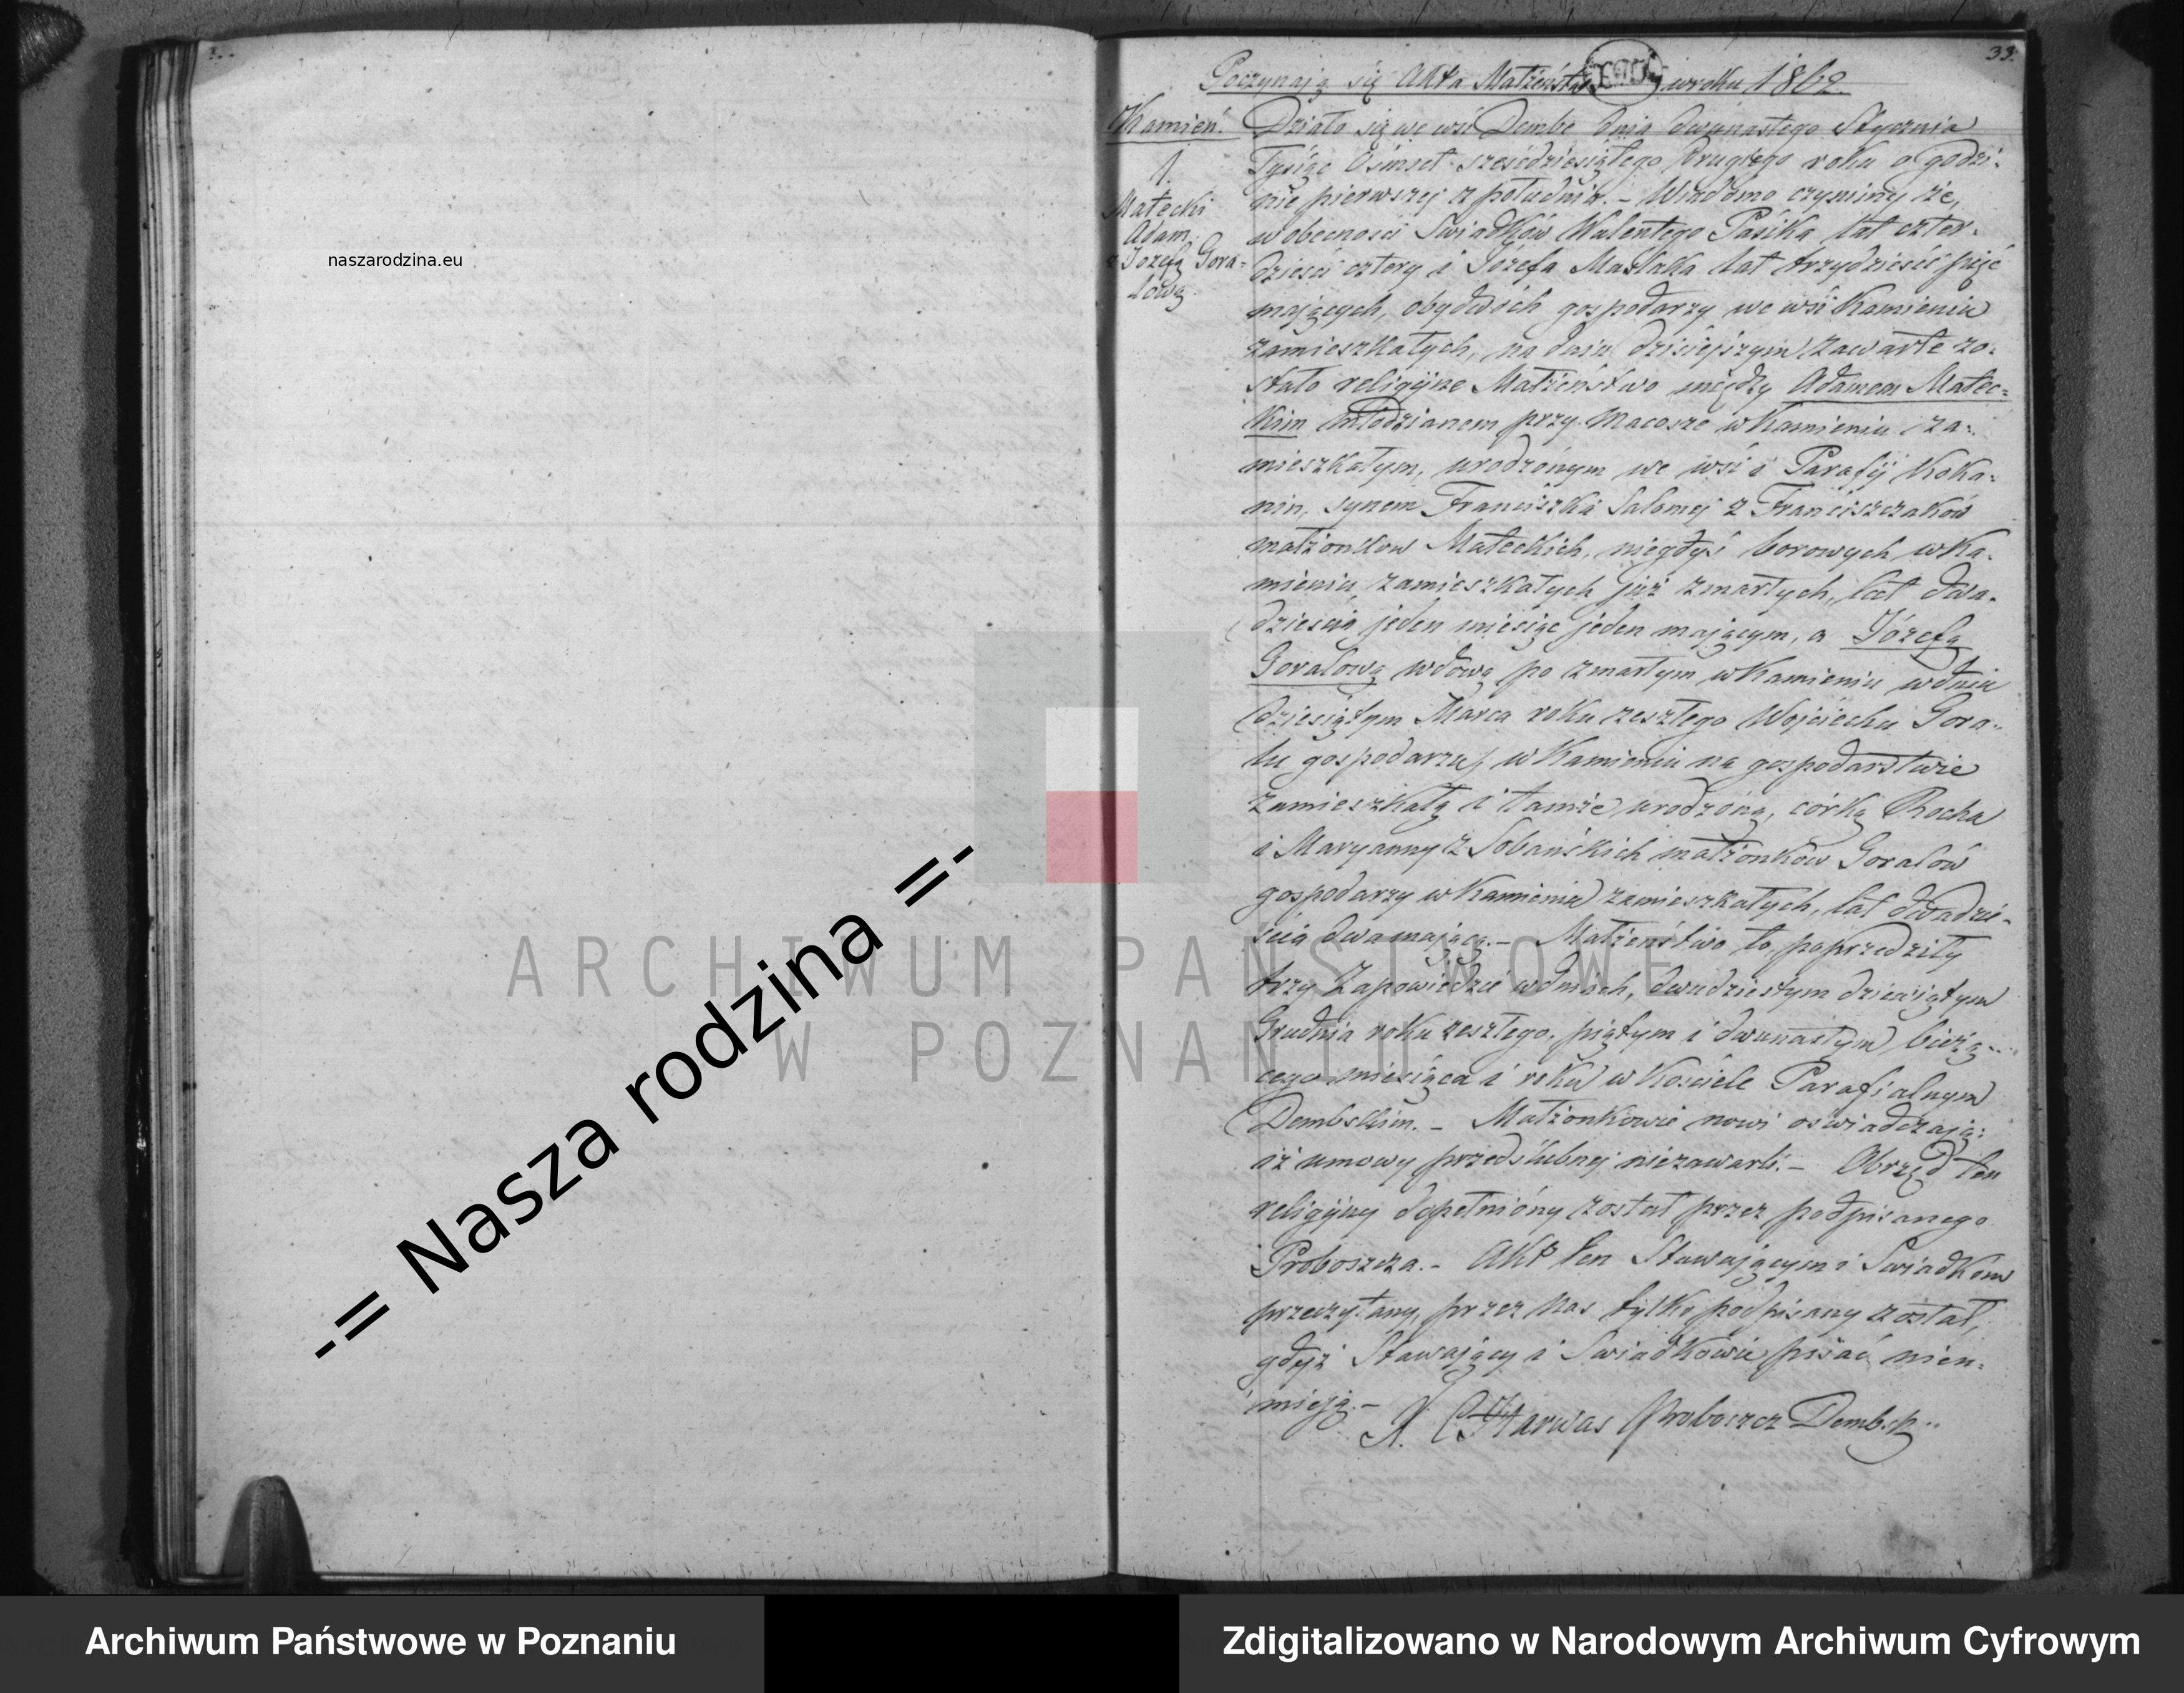 33.
Poczynają się Akta Małżeństw w roku 1862.
Kamień.
1.
Małecki
Adam
z Józefą Gora-
lową.
Działo się we wsi Dembe dnia dwunastego Stycznia
Tysiąc Ośmset sześćdziesiątego drugiego roku o godzi-
nie pierwszej z południa. – Wiadomo czyniemy że,
w obecności Swiadków Walentego Pasika lat czter-
dzieści cztery i Józefa Maślaka lat trzydzieści pięć
mających, obydwóch gospodarzy we wsi Kamieniu
zamieszkałych, na dniu dzisiejszym zawarte zo-
stało religijne Małżeństwo między Adamem Małec-
kim młodzianem przy Macosze w Kamieniu za-
mieszkałym, urodzonym we wsi i Parafii Koka-
nin, synem Franciszka Salomei z Franciszczaków
małżonków Małeckich, niegdyś borowych w Ka-
mieniu zamieszkałych już zmarłych, lat dwa-
dzieścia jeden miesiąc jeden mającym, a Józefą
Goralową wdową po zmarłym w Kamieniu w dniu
dziesiątym Marca roku zeszłego Wojciechu Gora-
lu gospodarzu, w Kamieniu na gospodarstwie
zamieszkałą i tamże urodzoną, córką Rocha
i Maryanny z Sobańskich małżonków Goralów
gospodarzy w Kamieniu zamieszkałych, lat dwadzie-
ścia dwa mającą. – Małżeństwo to poprzedziły
trzy Zapowiedzie w dniach, dwudziestym dziewiątym
Grudnia roku zeszłego, piątym i dwunastym bieżą-
cego miesiąca i roku w Kościele Parafialnym
Dembskim. – Małżonkowie nowi oświadczają:
iż umowy przedślubnej niezawarli. – Obrzęd ten
religijny dopełniony został przez podpisanego
Proboszcza. – Akt ten Stawającym i Swiadkom
przeczytany, przez Nas tylko podpisany został,
gdyż Stawający i Swiadkowie pisać nieu-
mieją. –
X. Harwas Proboszcz Dembsk..
naszarodzina.eu
-= Nasza rodzina =-
ARCHIWUM PAŃSTWOWE
W POZNANIU
Archiwum Państwowe w Poznaniu
Zdigitalizowano w Narodowym Archiwum Cyfrowym